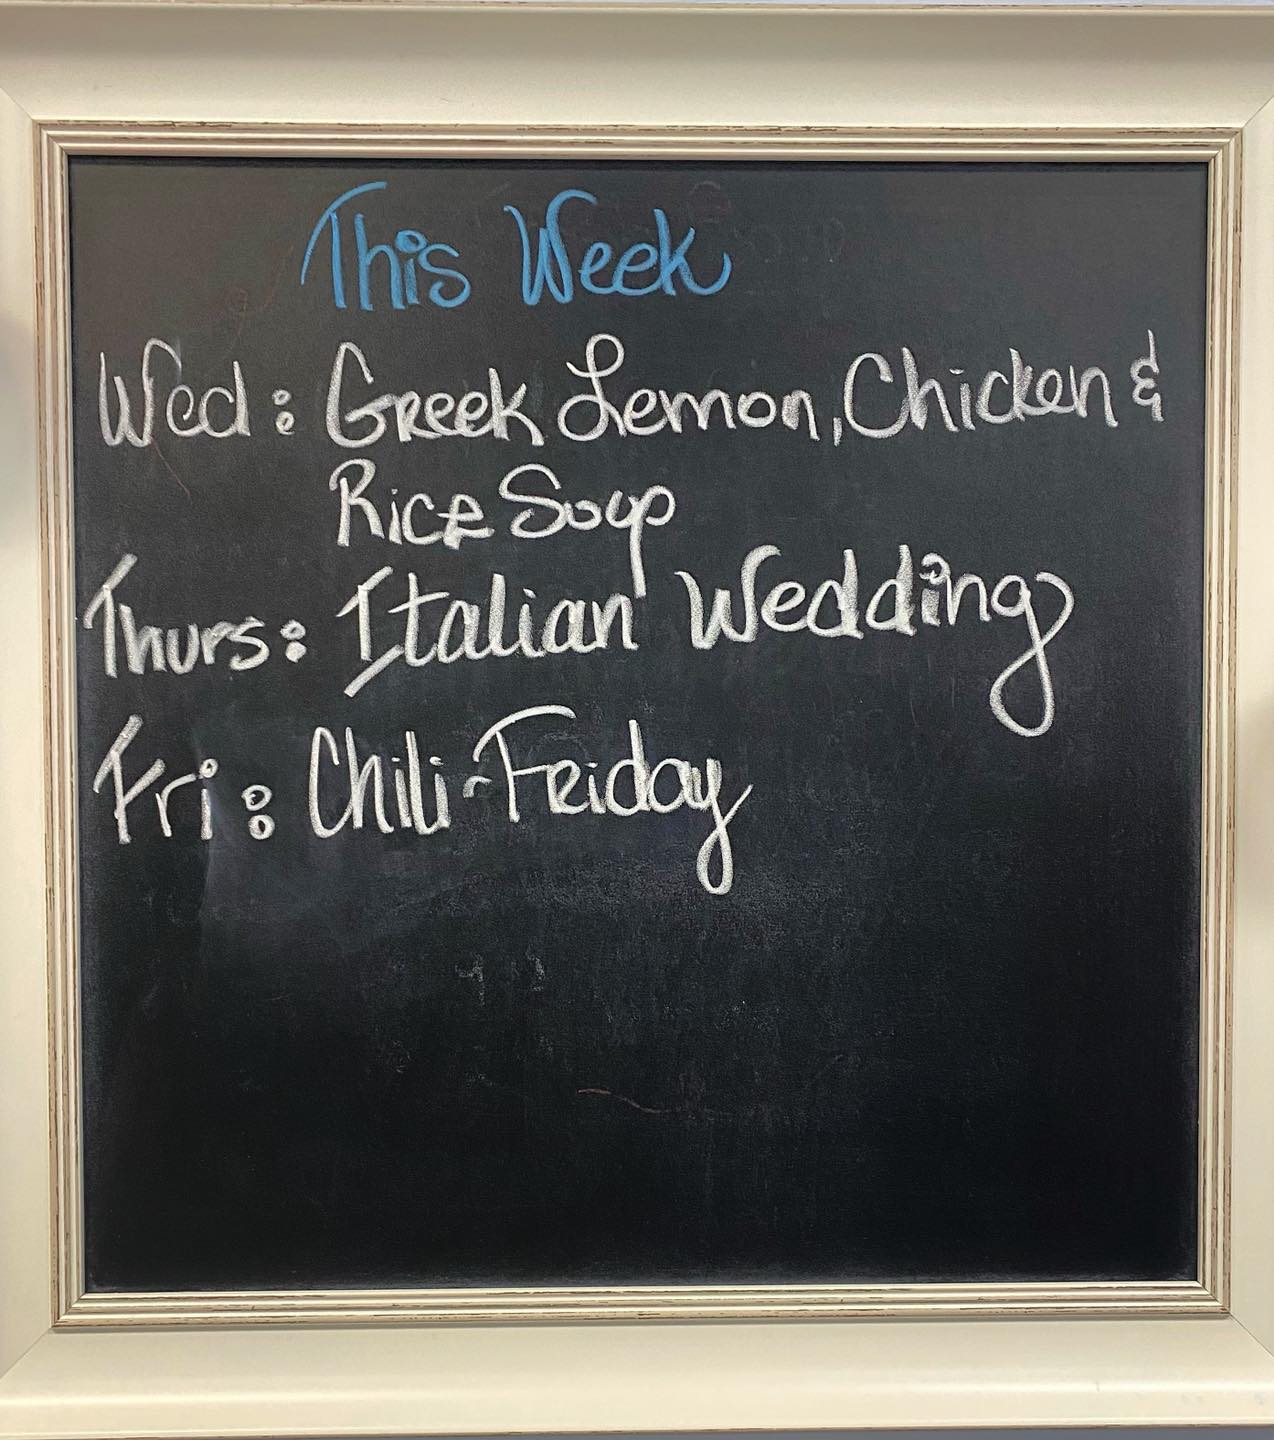 This Week
Wed: Greek Lemon, Chicken &
Rice Soup
Thurs: Italian Wedding
Fri: Chili-Friday